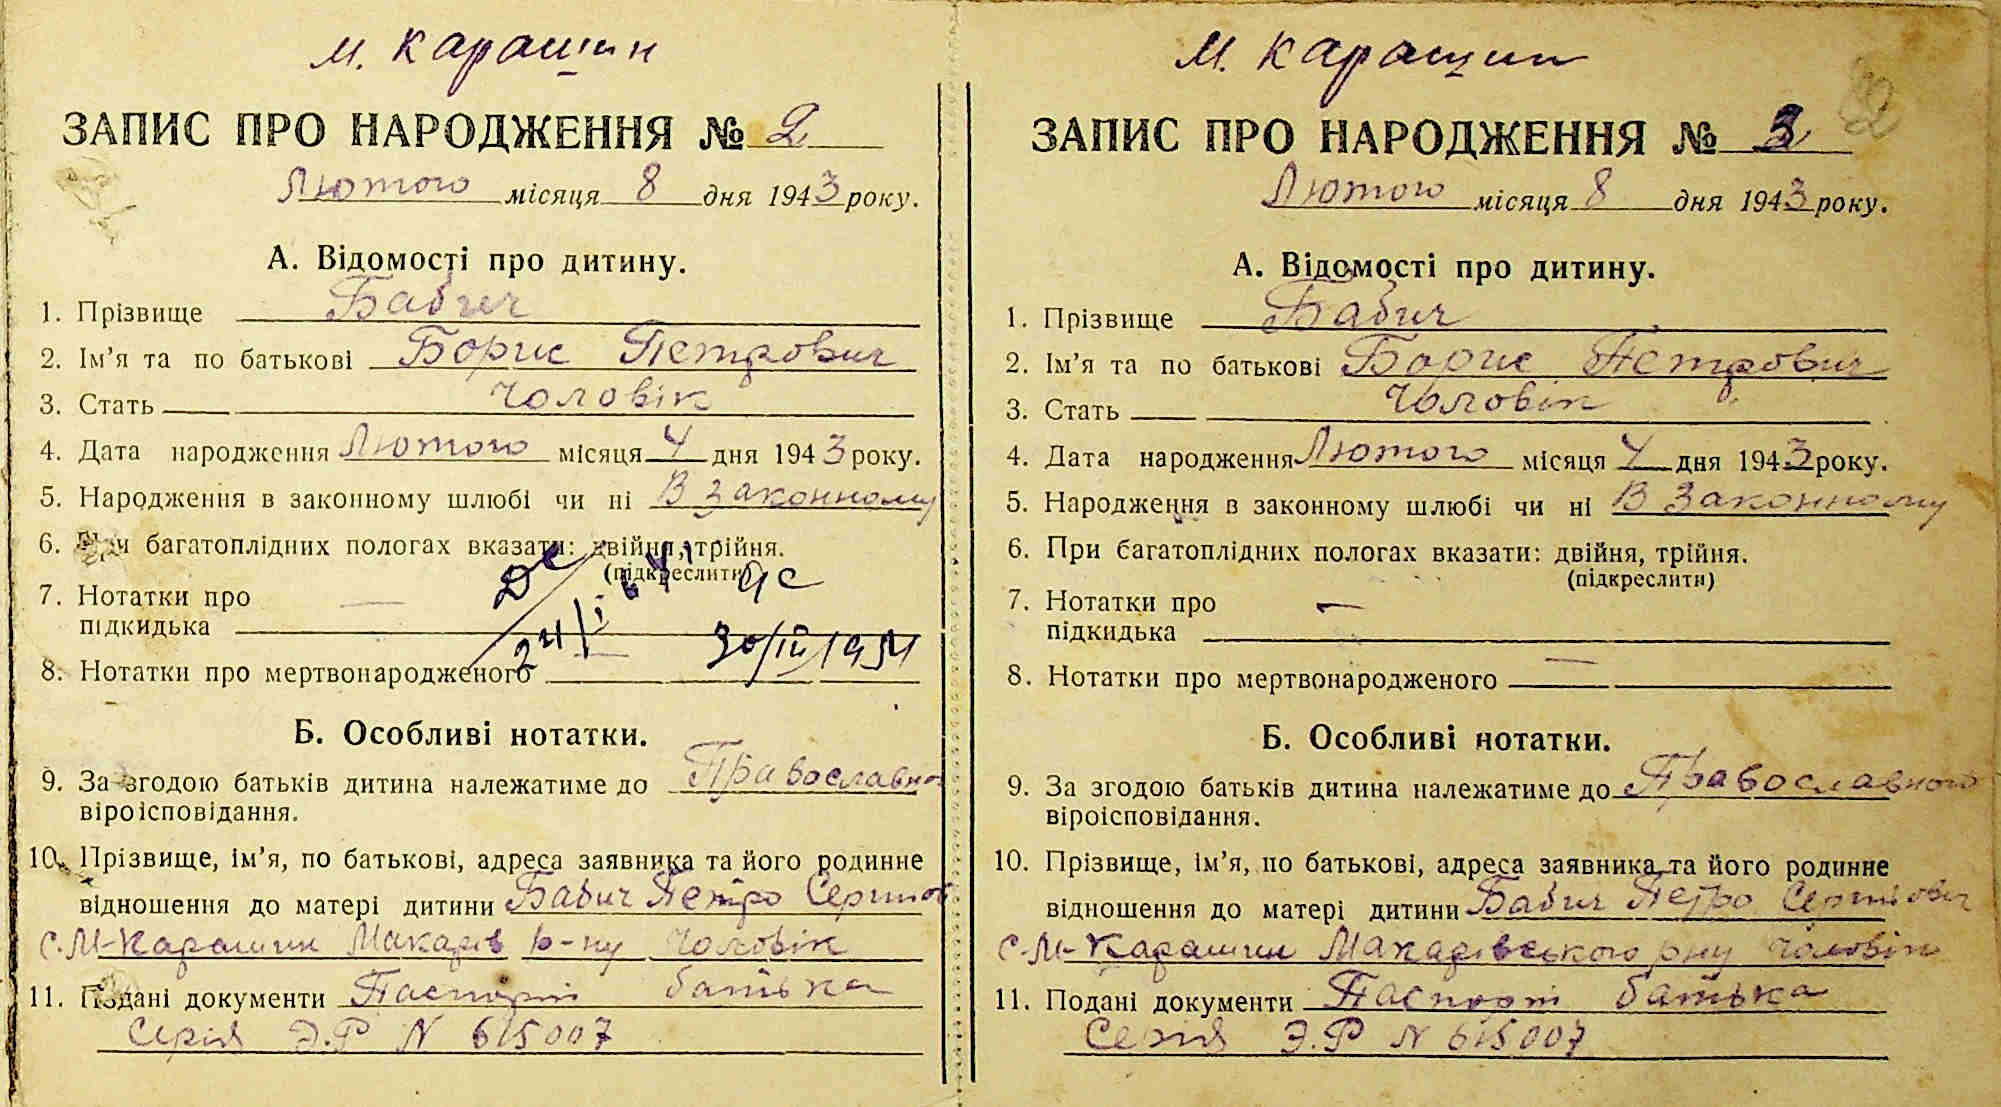 м. Карашин
ЗАПИС ПРО НАРОДЖЕННЯ № 2
Лютого місяця 8 дня 1943 року.
А. Відомості про дитину.
1. Прізвище Бабич
2. Ім'я та по батькові Борис Петрович
3. Стать Чоловік
4. Дата народження Лютого місяця 4 дня 1943 року.
5. Народження в законному шлюбі чи ні В законному
6. При багатоплідних пологах вказати: двійня, трійня.
(підкреслити)
7. Нотатки про —
підкидька
30/III 1951
8. Нотатки про мертвонародженого —
Б. Особливі нотатки.
9. За згодою батьків дитина належатиме до Православно
віроісповідання.
10. Прізвище, ім'я, по батькові, адреса заявника та його родинне
відношення до матері дитини Бабич Петро
с. М-Карашин Макарів р-ну Чоловік
11. Подані документи Паспорт батька
Серія Э.Р N 615007
м. Карашин
ЗАПИС ПРО НАРОДЖЕННЯ № 3
Лютого місяця 8 дня 1943 року.
А. Відомості про дитину.
1. Прізвище Бабич
2. Ім'я та по батькові Борис Петрович
3. Стать Чоловік
4. Дата народження Лютого місяця 4 дня 1943 року.
5. Народження в законному шлюбі чи ні В законному
6. При багатоплідних пологах вказати: двійня, трійня.
(підкреслити)
7. Нотатки про —
підкидька
8. Нотатки про мертвонародженого —
Б. Особливі нотатки.
9. За згодою батьків дитина належатиме до Православного
віроісповідання.
10. Прізвище, ім'я, по батькові, адреса заявника та його родинне
відношення до матері дитини Бабич Петро Сергійович
с. М-Карашин Макарівського р-ну Чоловік
11. Подані документи Паспорт батька
Серія Э.Р N 615007